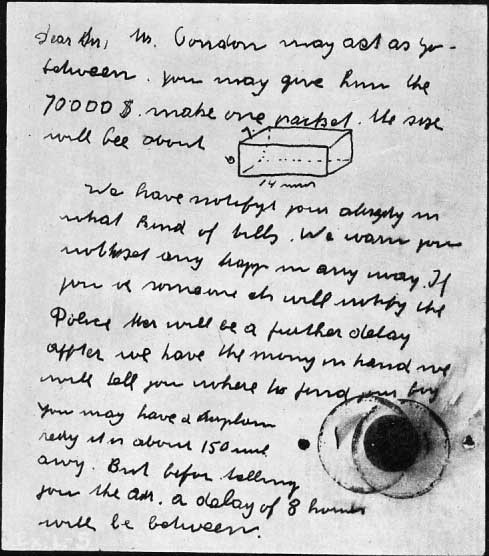 Dear Sir, Mr. Condon may act as go-
between. you may give him the
70000 $. make one packet. the size
will bee about
7
6
14 inch
We have notifyt you allredy in
what kind of bills. We warn you
not to set any trapp in any way. If
you or someone els will notify the
Police ther will be a further delay
affter we have the mony in hand we
will tell you where to find your boy
You may have a airplane
redy it is about 150 mile
awy. But befor telling
you the adr. a delay of 8 houers
will be between.